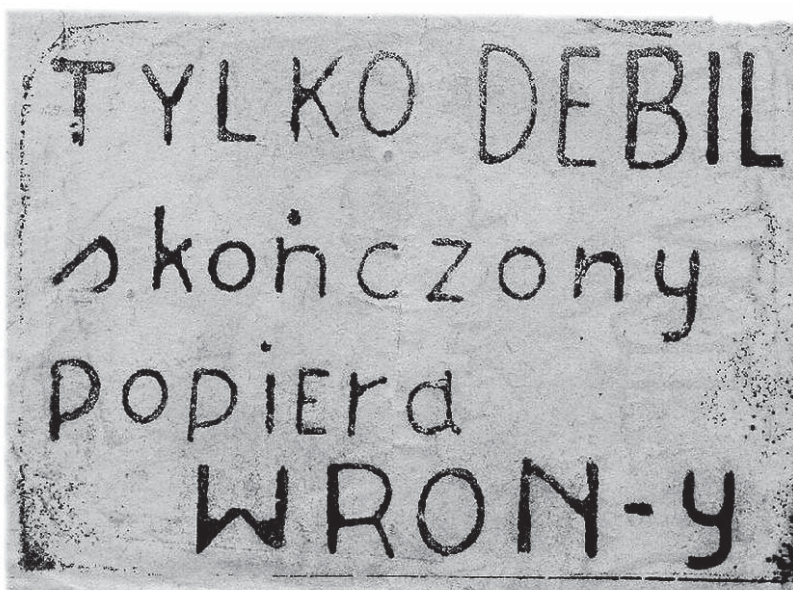 TYLKO DEBIL
skończony
popiera
WRON-y